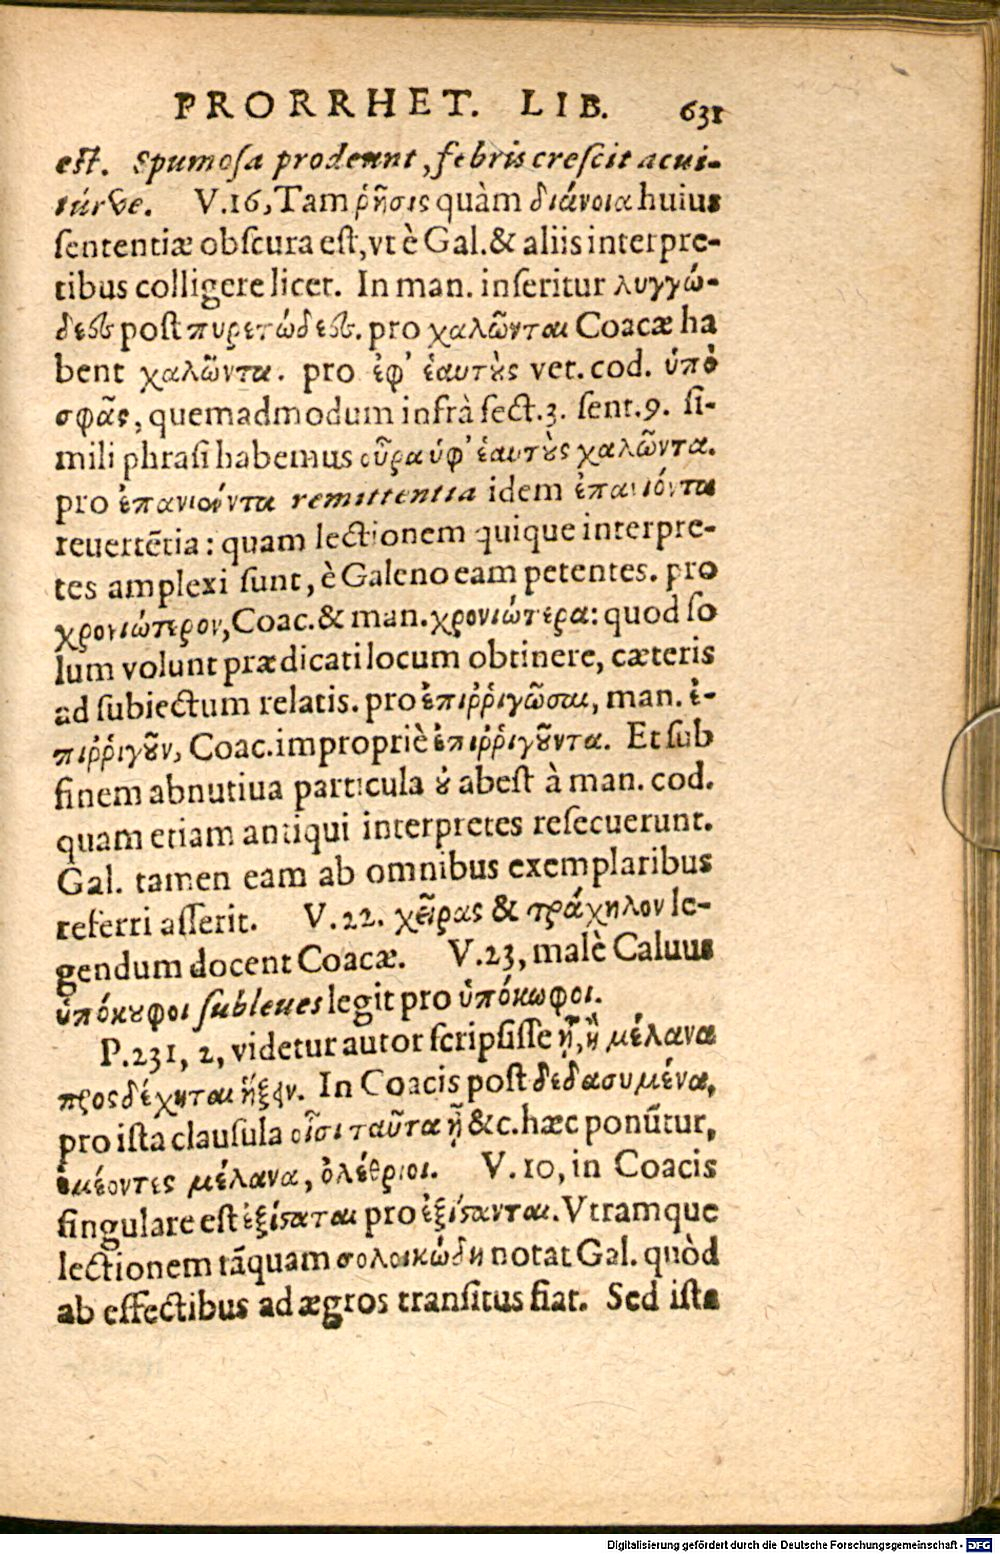 PRORRHET. LIB. 631
est. Spumosa prodeunt, febris crescit acui-
túrve. V.16, Tam ῥῆσις quàm διάνοια huius
sententiæ obscura est, vt è Gal. & aliis interpre-
tibus colligere licet. In man. inseritur λυγγώ-
δεες post πυρετώδεες. pro χαλῶνται Coacæ ha
bent χαλῶντα. pro ἐφ' ἑαυτοὺς vet. cod. ὑπὸ
σφᾶς, quemadmodum infrà sect.3. sent.9. si-
mili phrasi habemus οὖρα ὑφ' ἑαυτοὺς χαλῶντα.
pro ἐπανιούντα remittentia idem ἐπανιόντα
reuertẽtia: quam lectionem quique interpre-
tes amplexi sunt, è Galeno eam petentes. pro
χρονιώτερον, Coac. & man. χρονιώτερα: quod so
lum volunt prædicati locum obtinere, cæteris
ad subiectum relatis. pro ἐπιῤῥιγῶσαι, man. ἐ-
πιῤῥιγοῦν, Coac. impropriè ἐπιῤῥιγοῦντα. Et sub
finem abnutiua particula οὐ abest à man. cod.
quam etiam antiqui interpretes resecuerunt.
Gal. tamen eam ab omnibus exemplaribus
referri asserit. V.22. χεῖρας & τράχηλον le-
gendum docent Coacæ. V.23, malè Caluus
ὑπόκουφοι subleues legit pro ὑπόκωφοι.
P.231, 2, videtur autor scripsisse ᾖ, ἢ μέλανα
προσδέχηται ἥξειν. In Coacis post δεδασυμένα,
pro ista clausula οἷσι ταῦτα ᾖ &c. hæc ponũtur,
ἐμέοντες μέλανα, ὀλέθριοι. V.10, in Coacis
singulare est ἐξίσταται pro ἐξίστανται. Vtramque
lectionem tãquam σολοικώδη notat Gal. quòd
ab effectibus ad ægros transitus fiat. Sed ista
Digitalisierung gefördert durch die Deutsche Forschungsgemeinschaft - DFG